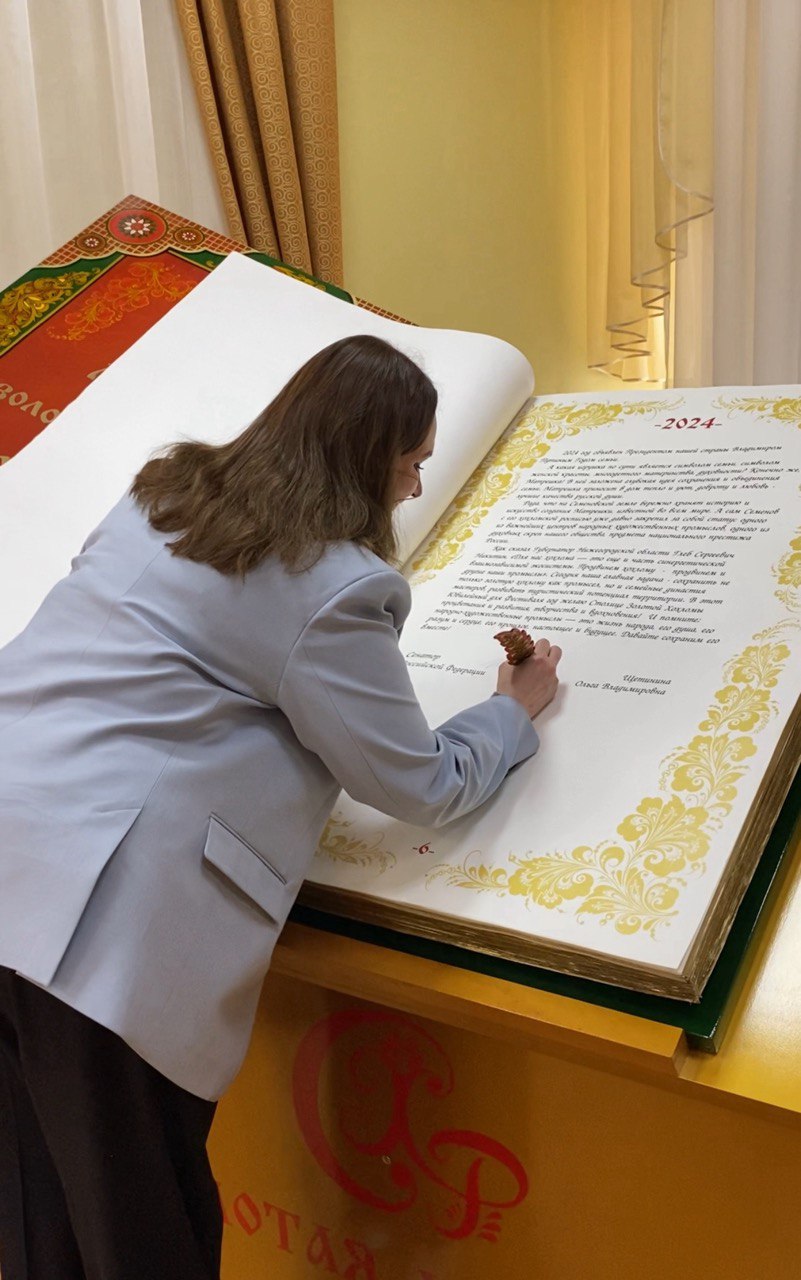 -2024-
2024 год объявлен Президентом нашей страны Владимиром
Путиным Годом семьи.
А какая игрушка по сути является символом семьи, символом
женской красоты, многодетного материнства, духовности? Конечно же,
Матрешка! В ней заложена глубокая идея сохранения и объединения
семьи. Матрешка приносит в дом тепло и уют, доброту и любовь -
лучшие качества русской души.
Рада, что на Семеновской земле бережно хранят историю и
искусство создания Матрешки, известной во всем мире. А сам Семенов
с его хохломской росписью уже давно закрепил за собой статус одного
из важнейших центров народных художественных промыслов, одного из
духовных скреп нашего общества, предмета национального престижа
России.
Как сказал Губернатор Нижегородской области Глеб Сергеевич
Никитин, «Для нас хохлома — это еще и часть синергетической
взаимосвязанной экосистемы. Продвигаем хохлому - продвигаем и
другие наши промыслы». Сегодня наша главная задача - сохранить не
только золотую хохлому как промысел, но и семейные династии
мастеров, развивать туристический потенциал территории. В этот
Юбилейный для Фестиваля год желаю Столице Золотой Хохломы
процветания и развития, творчества и вдохновения! И помните:
народно-художественные промыслы — это жизнь народа, его душа, его
разум и сердце, его прошлое, настоящее и будущее. Давайте сохраним его
вместе!
Сенатор
Российской Федерации
Щетинина
Ольга Владимировна
-6-